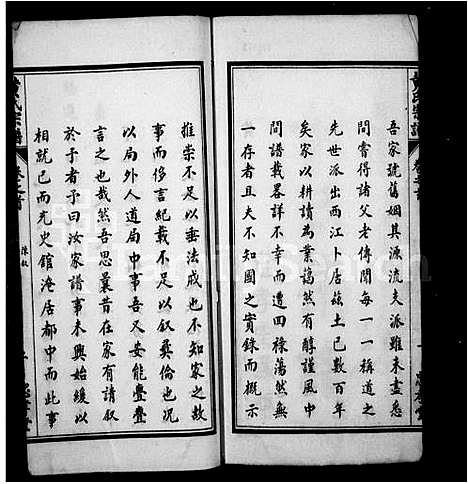 吾家號舊姻其源流夫派雖未盡悉
間嘗得諸父老傳聞每一一稱道之
先世派出西江卜居茲土已數百年
矣家以耕讀為業藹然有醇謹風中
間譜載畧詳不幸而遭回祿蕩然無
一存者且夫不知國之實錄而概示
推崇不足以垂法戒也不知家之故
事而侈言紀載不足以敘彝倫也況
以局外人道局中事吾又安能疊疊
言之也哉然吾思曩昔在家有請敘
於予者予曰汝家譜事未興始緩以
相就已而充史館淹居都中而此事
黃氏宗譜
卷之首